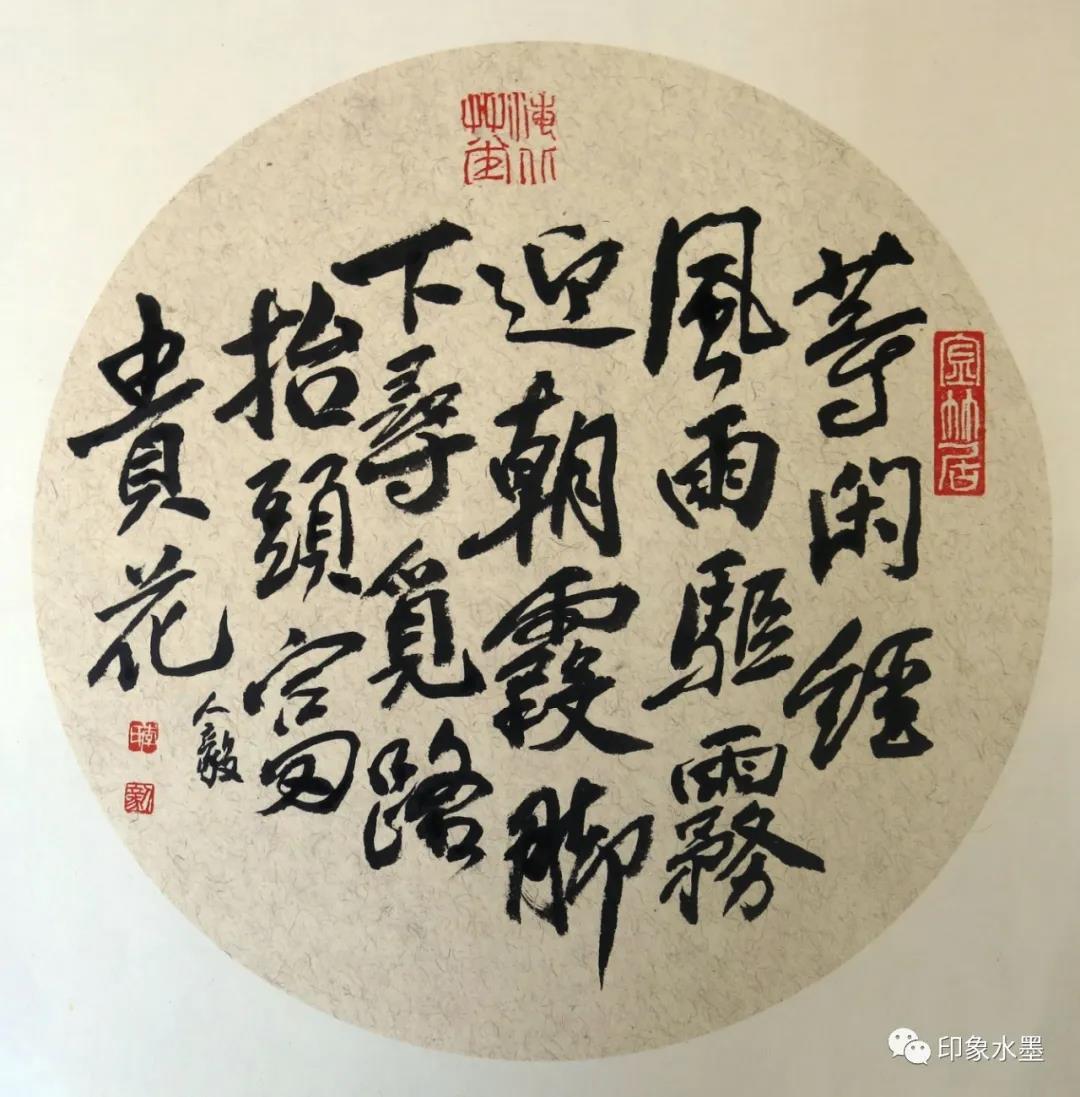 等閑經
風雨驅霧
迎朝霞脚
下尋覓路
抬頭富
貴花
人毅
印象水墨